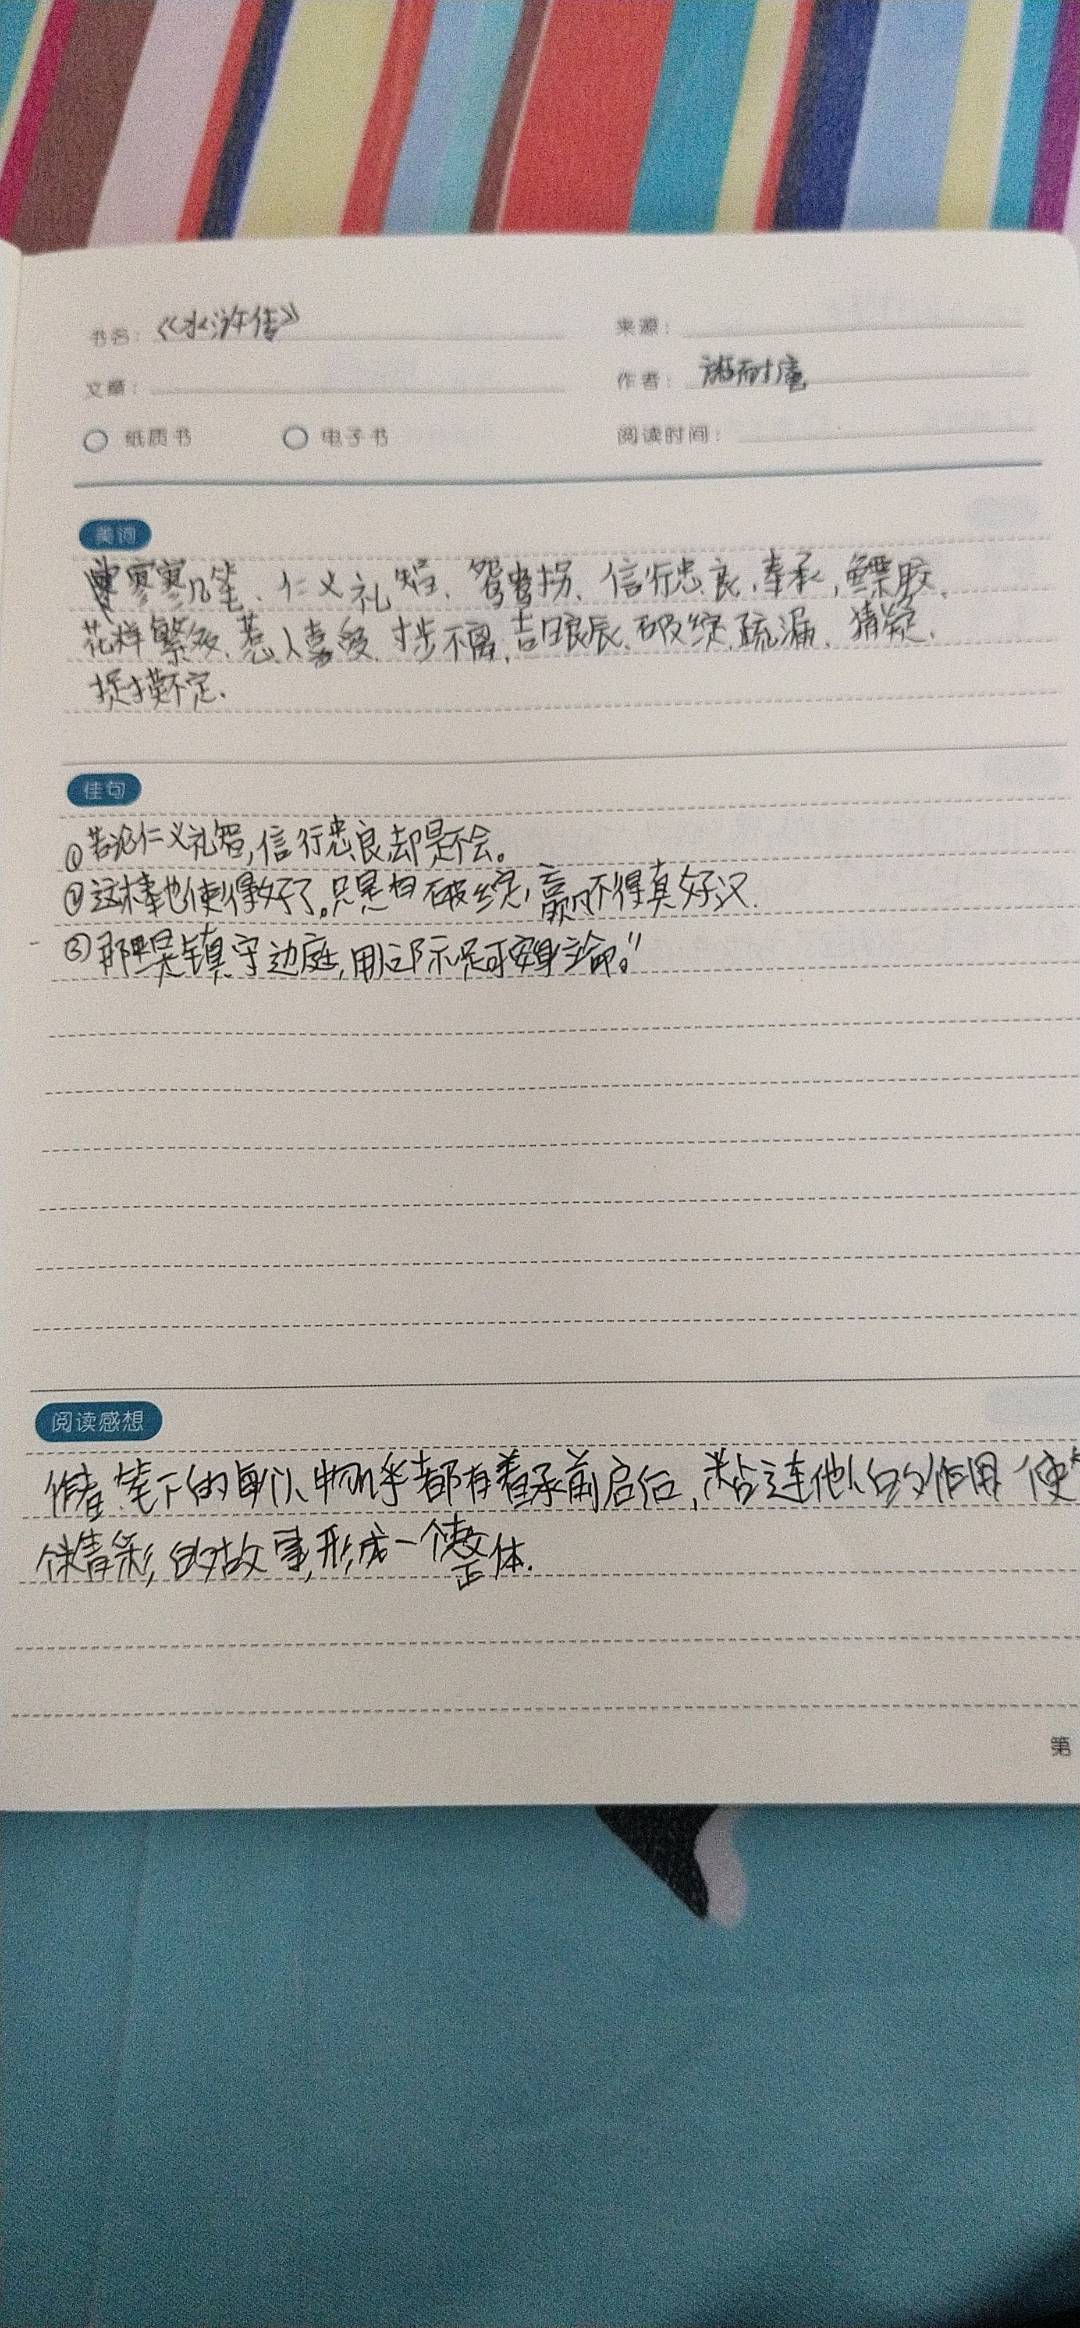 书名：《水浒传》
来源：
文章：
作者：施耐庵
纸质书 电子书
阅读时间：
美词
寥寥几笔、仁义礼智、鸳鸯拐、信行忠良、奉承，鳔胶、
花样繁多、惹人喜爱、寸步不离、吉日良辰、破绽、疏漏、猜疑、
捉摸不定、
佳句
①若论仁义礼智，信行忠良却是不会。
②这棒也使得好了。只是有破绽，赢不得真好汉.
③那里是镇守边庭，用人之际，足可安身立命。”
阅读感想
作者笔下的每个人物几乎都有着承前启后，粘连他人的作用 使
个精彩的故事，形成一个整体.
第